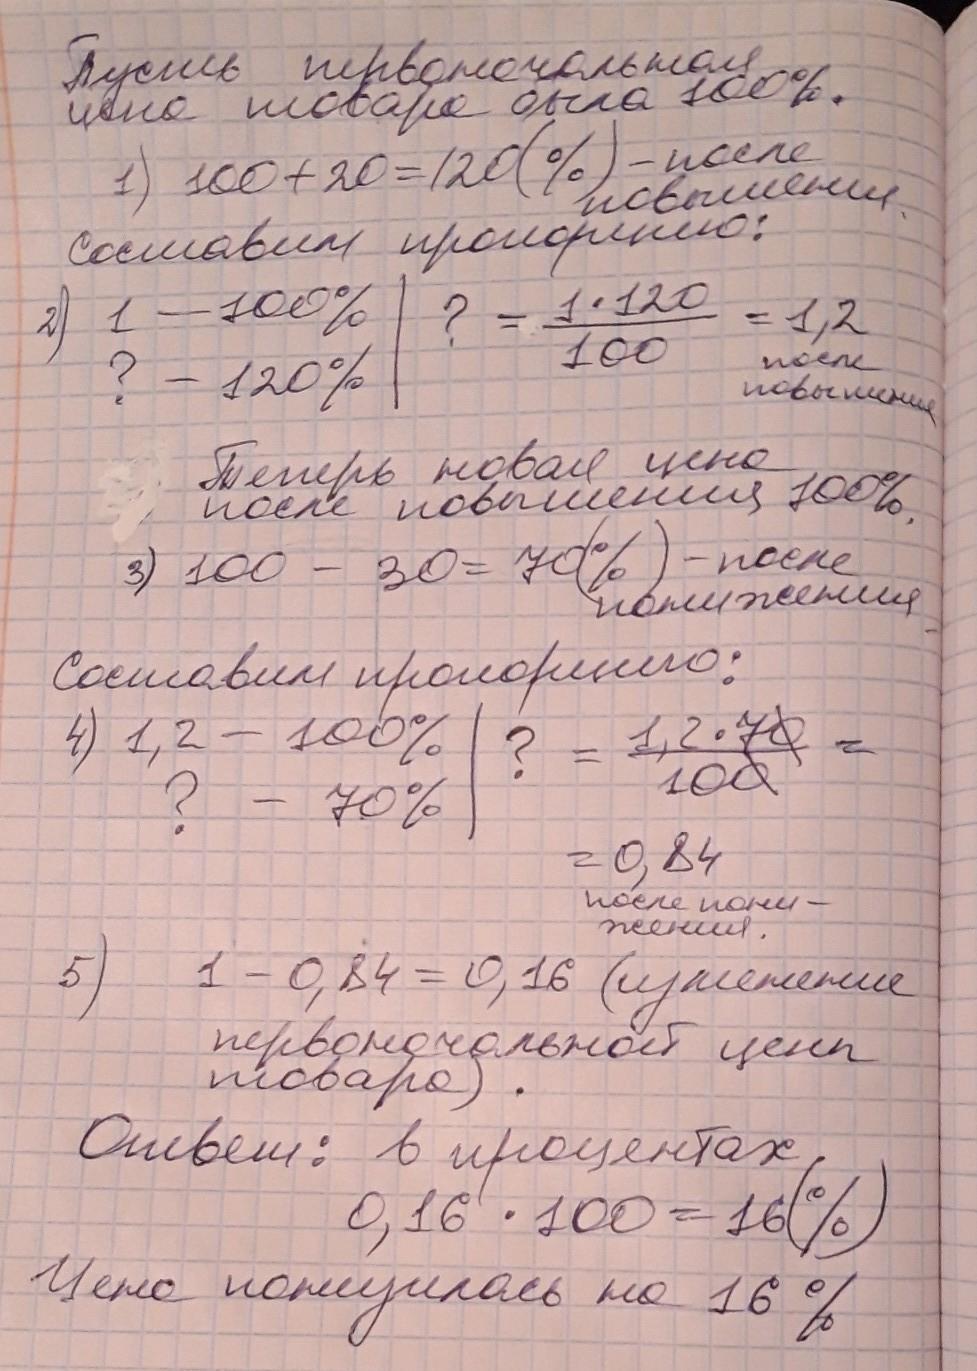 Пусть первоначальная
цена товара была 100%.
1) 100+20=120(%) – после
повышения.
Составим пропорцию:
2) 1 – 100% | ? = 1·120/100 = 1,2
? – 120% | после
повышения
Теперь новая цена
после повышения 100%.
3) 100 – 30 = 70(%) – после
понижения
Составим пропорцию:
4) 1,2 – 100% | ? = 1,2·70/100 =
? – 70%
= 0,84
после пони-
жения.
5) 1 – 0,84 = 0,16 (изменение
первоначальной цены
товара).
Ответ: в процентах
0,16 · 100 = 16(%)
Цена понизилась на 16%